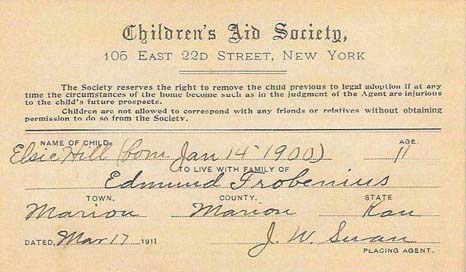 Children's Aid Society,
105 EAST 22D STREET, NEW YORK
The Society reserves the right to remove the child previous to legal adoption if at any
time the circumstances of the home become such as in the judgment of the Agent are injurious
to the child's future prospects.
Children are not allowed to correspond with any friends or relatives without obtaining
permission to do so from the Society.
NAME OF CHILD. AGE.
Elsie Hill (born Jan 14 1900) 11
TO LIVE WITH FAMILY OF
Edmund Frobenius
TOWN. COUNTY. STATE
Marion Marion Kan
DATED, Mar 17 1911 J. W. Swan
PLACING AGENT.